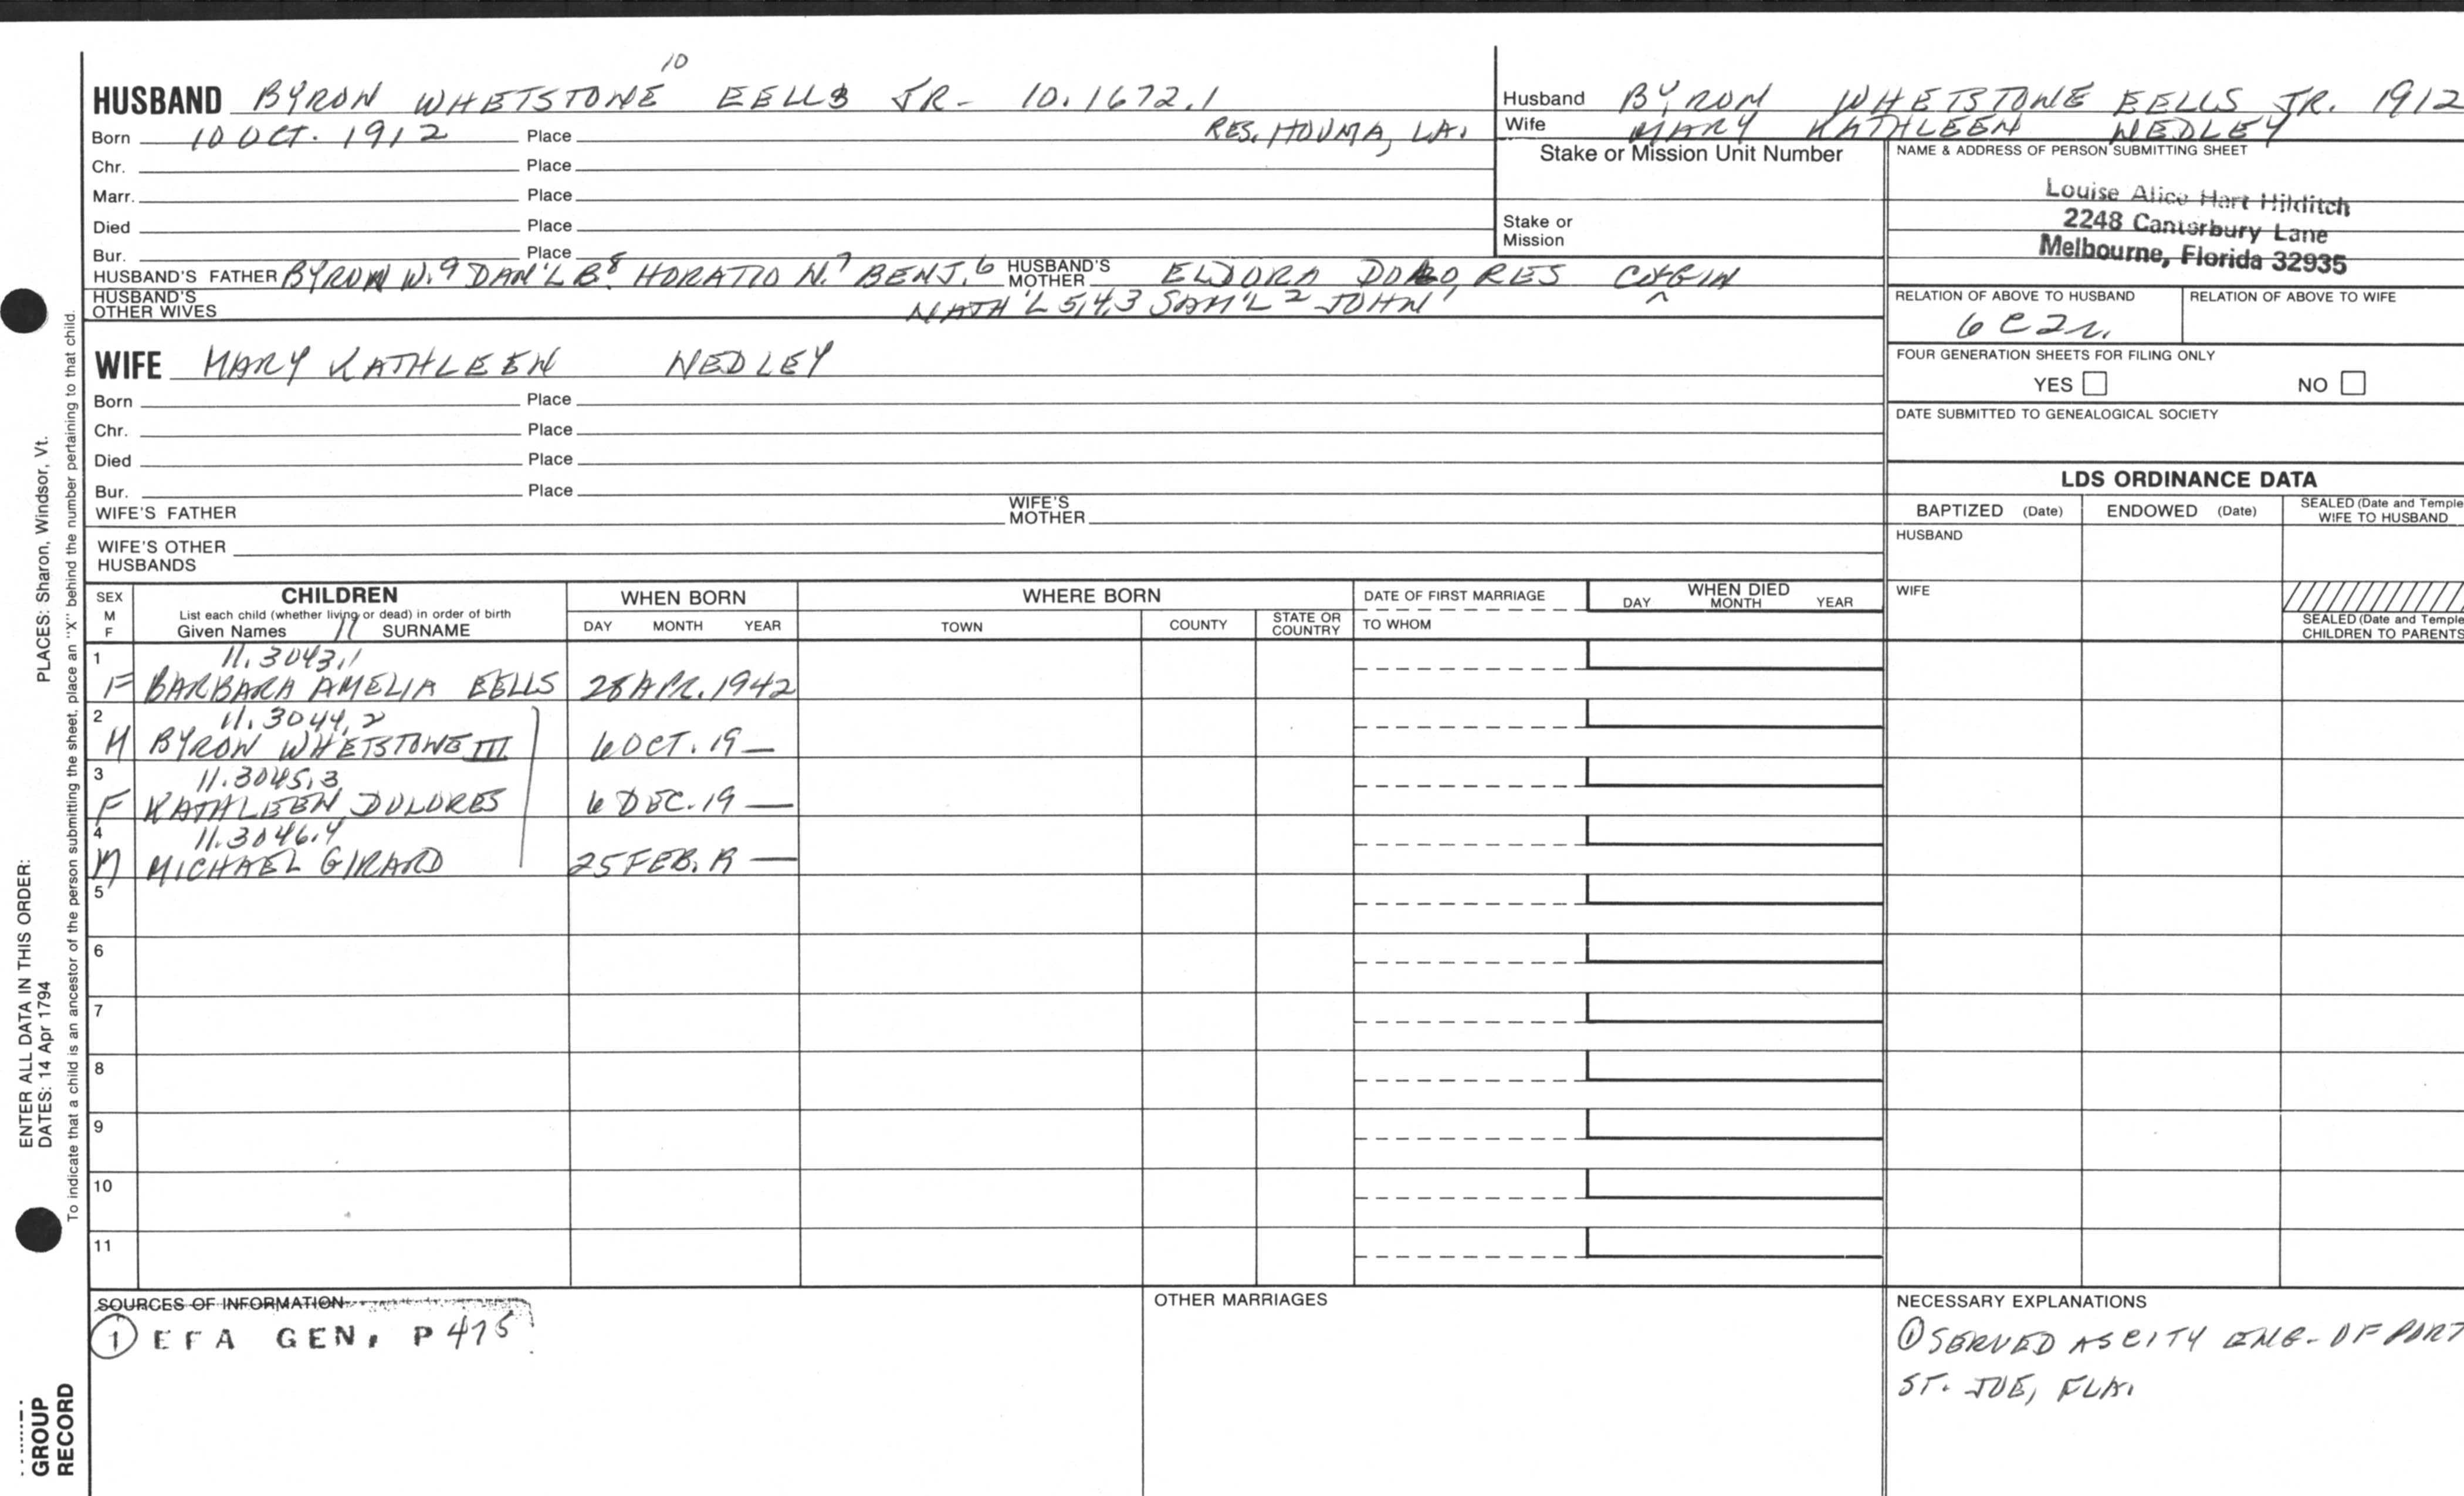 10
HUSBAND BYRON WHETSTONE EELLS JR- 10.1672.1
Born 10 OCT. 1912 Place RES. HOUMA, LA.
Chr. Place
Marr. Place
Died Place
Bur. Place
HUSBAND'S FATHER BYRON W.9 DAN'L B.8 HORATIO N.7 BENJ.6 HUSBAND'S MOTHER ELDORA DOLORES
HUSBAND'S OTHER WIVES NATH'L 5,4,3 SAM'L 2 JOHN 1
WIFE MARY KATHLEEN NEDLEY
Born Place
Chr. Place
Died Place
Bur. Place
WIFE'S FATHER WIFE'S MOTHER
WIFE'S OTHER HUSBANDS
Husband BYRON WHETSTONE EELLS JR. 1912
Wife MARY KATHLEEN NEDLEY
Stake or Mission Unit Number
Stake or
Mission
NAME & ADDRESS OF PERSON SUBMITTING SHEET
Louise Alice Hart Hilditch
2248 Canterbury Lane
Melbourne, Florida 32935
RELATION OF ABOVE TO HUSBAND RELATION OF ABOVE TO WIFE
6C2r.
FOUR GENERATION SHEETS FOR FILING ONLY
YES NO
DATE SUBMITTED TO GENEALOGICAL SOCIETY
LDS ORDINANCE DATA
BAPTIZED (Date) ENDOWED (Date) SEALED (Date and Temple
WIFE TO HUSBAND
HUSBAND
WIFE
SEALED (Date and Temple
CHILDREN TO PARENTS
SEX
M
F
CHILDREN
List each child (whether living or dead) in order of birth
Given Names 11 SURNAME
WHEN BORN
DAY MONTH YEAR
WHERE BORN
TOWN COUNTY STATE OR COUNTRY
DATE OF FIRST MARRIAGE
TO WHOM
WHEN DIED
DAY MONTH YEAR
1 11.3043.1
F BARBARA AMELIA EELLS 28 APR. 1942
2 11.3044.2
M BYRON WHETSTONE III 6 OCT. 19—
3 11.3045.3
F KATHLEEN DOLORES 6 DEC. 19—
4 11.3046.4
M MICHAEL GIRARD 25 FEB. 19—
5
6
7
8
9
10
11
SOURCES OF INFORMATION
1 EFA GEN, P 475
OTHER MARRIAGES
NECESSARY EXPLANATIONS
1 SERVED AS CITY ENG- OF PORT
ST. JOE, FLA.
ENTER ALL DATA IN THIS ORDER:
DATES: 14 Apr 1794 PLACES: Sharon, Windsor, Vt.
To indicate that a child is an ancestor of the person submitting the sheet, place an "X" behind the number pertaining to that child.
GROUP
RECORD